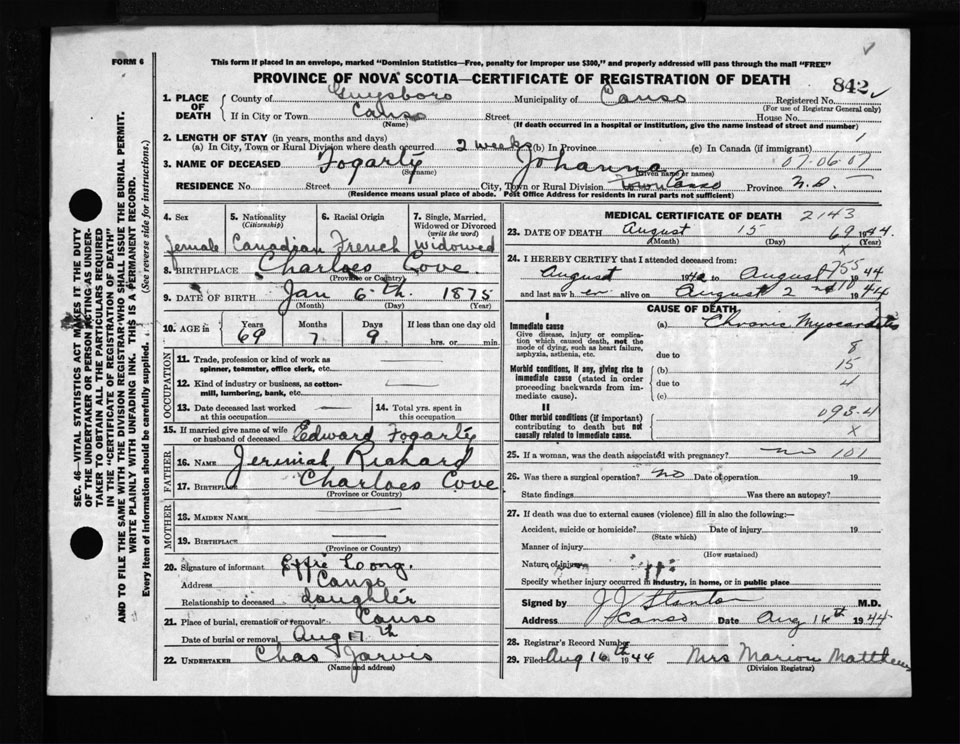 FORM 6
This form if placed in an envelope, marked "Dominion Statistics—Free, penalty for improper use $300," and properly addressed will pass through the mail "FREE"
PROVINCE OF NOVA SCOTIA—CERTIFICATE OF REGISTRATION OF DEATH
842
1. PLACE OF DEATH { County of Guysboro Municipality of Canso Registered No.
(For use of Registrar General only)
If in City or Town Canso Street House No.
(Name) (If death occurred in a hospital or institution, give the name instead of street and number)
2. LENGTH OF STAY (in years, months and days)
(a) In City, Town or Rural Division where death occurred 2 weeks (b) In Province (c) In Canada (if immigrant) 1
3. NAME OF DECEASED Fogarty Johanna 07-06-07
(Surname) (Given name or names)
RESIDENCE No. Street City, Town or Rural Division Canso Province N.S.
(Residence means usual place of abode. Post Office Address for residents in rural parts not sufficient)
4. Sex female
5. Nationality (Citizenship) Canadian
6. Racial Origin French
7. Single, Married, Widowed or Divorced (write the word) Widowed
8. BIRTHPLACE Charloes Cove
(Province or Country)
9. DATE OF BIRTH Jan 6th 1875
(Month) (Day) (Year)
10. AGE in Years Months Days If less than one day old
69 7 9 hrs. or min.
OCCUPATION
11. Trade, profession or kind of work as spinner, teamster, office clerk, etc. —
12. Kind of industry or business, as cotton-mill, lumbering, bank, etc. —
13. Date deceased last worked at this occupation —
14. Total yrs. spent in this occupation —
15. If married give name of wife or husband of deceased Edward Fogarty
FATHER
16. NAME Jerimiah Richard
17. BIRTHPLACE Charloes Cove
(Province or Country)
MOTHER
18. MAIDEN NAME —
19. BIRTHPLACE —
(Province or Country)
20. Signature of informant Effie Long.
Address Canso
Relationship to deceased daughter
21. Place of burial, cremation or removal Canso
Date of burial or removal Aug 17th
22. UNDERTAKER Chas Jarvis
(Name and address)
MEDICAL CERTIFICATE OF DEATH 2143
23. DATE OF DEATH August 15 69 1944.
(Month) (Day) x (Year)
24. I HEREBY CERTIFY that I attended deceased from:
August 1942 to August 1944
and last saw her alive on August 2nd 1944
CAUSE OF DEATH
I
Immediate cause
Give disease, injury or complication which caused death, not the mode of dying, such as heart failure, asphyxia, asthenia, etc.
(a) Chronic Myocarditis
due to 8
Morbid conditions, if any, giving rise to immediate cause (stated in order proceeding backwards from immediate cause).
(b) 15
due to 4
(c)
II
Other morbid conditions (if important) contributing to death but not causally related to immediate cause.
093-4
x
25. If a woman, was the death associated with pregnancy? no 101
26. Was there a surgical operation? no Date of operation 19
State findings Was there an autopsy?
27. If death was due to external causes (violence) fill in also the following:—
Accident, suicide or homicide? Date of injury 19
(State which)
Manner of injury
(How sustained)
Nature of injury
Specify whether injury occurred in industry, in home, or in public place
Signed by J J Stanton M.D.
Address Canso Date Aug 16th 1944
28. Registrar's Record Number
29. Filed Aug 16th 1944 Mrs Marion Matthews
(Division Registrar)
SEC. 46—VITAL STATISTICS ACT MAKES IT THE DUTY
OF THE UNDERTAKER OR PERSON ACTING AS UNDER-
TAKER TO OBTAIN ALL THE PARTICULARS REQUIRED
IN THE "CERTIFICATE OF REGISTRATION OF DEATH"
AND TO FILE THE SAME WITH THE DIVISION REGISTRAR WHO SHALL ISSUE THE BURIAL PERMIT.
WRITE PLAINLY WITH UNFADING INK. THIS IS A PERMANENT RECORD.
Every item of information should be carefully supplied. (See reverse side for instructions.)